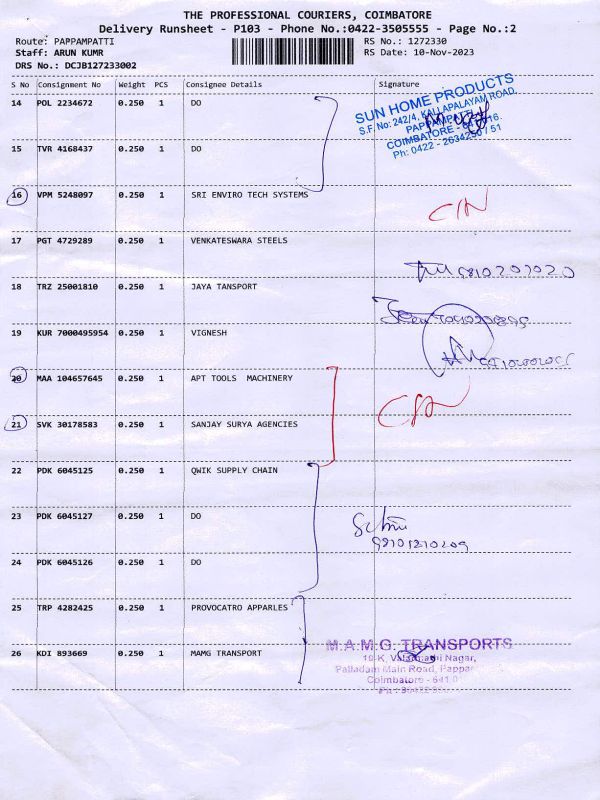 THE PROFESSIONAL COURIERS, COIMBATORE
Delivery Runsheet - P103 - Phone No.:0422-3505555 - Page No.:2
Route: PAPPAMPATTI RS No.: 1272330
Staff: ARUN KUMR RS Date: 10-Nov-2023
DRS No.: DCJB127233002
S No Consignment No Weight PCS Consignee Details Signature
14 POL 2234672 0.250 1 DO
SUN HOME PRODUCTS
S.F. No: 242/4, KALLAPALAYAM ROAD,
PAPPAMPATTI
COIMBATORE -
Ph: 0422 -
15 TVR 4168437 0.250 1 DO
16 VPM 5248097 0.250 1 SRI ENVIRO TECH SYSTEMS
17 PGT 4729289 0.250 1 VENKATESWARA STEELS
18 TRZ 25001810 0.250 1 JAYA TANSPORT
19 KUR 7000495954 0.250 1 VIGNESH
20 MAA 104657645 0.250 1 APT TOOLS MACHINERY
21 SVK 30178583 0.250 1 SANJAY SURYA AGENCIES
22 PDK 6045125 0.250 1 QWIK SUPPLY CHAIN
23 PDK 6045127 0.250 1 DO
24 PDK 6045126 0.250 1 DO
25 TRP 4282425 0.250 1 PROVOCATRO APPARLES
26 KDI 893669 0.250 1 MAMG TRANSPORT
M.A.M.G. TRANSPORTS
Nagar,
Palladam Main Road,
Coimbatore - 641 0